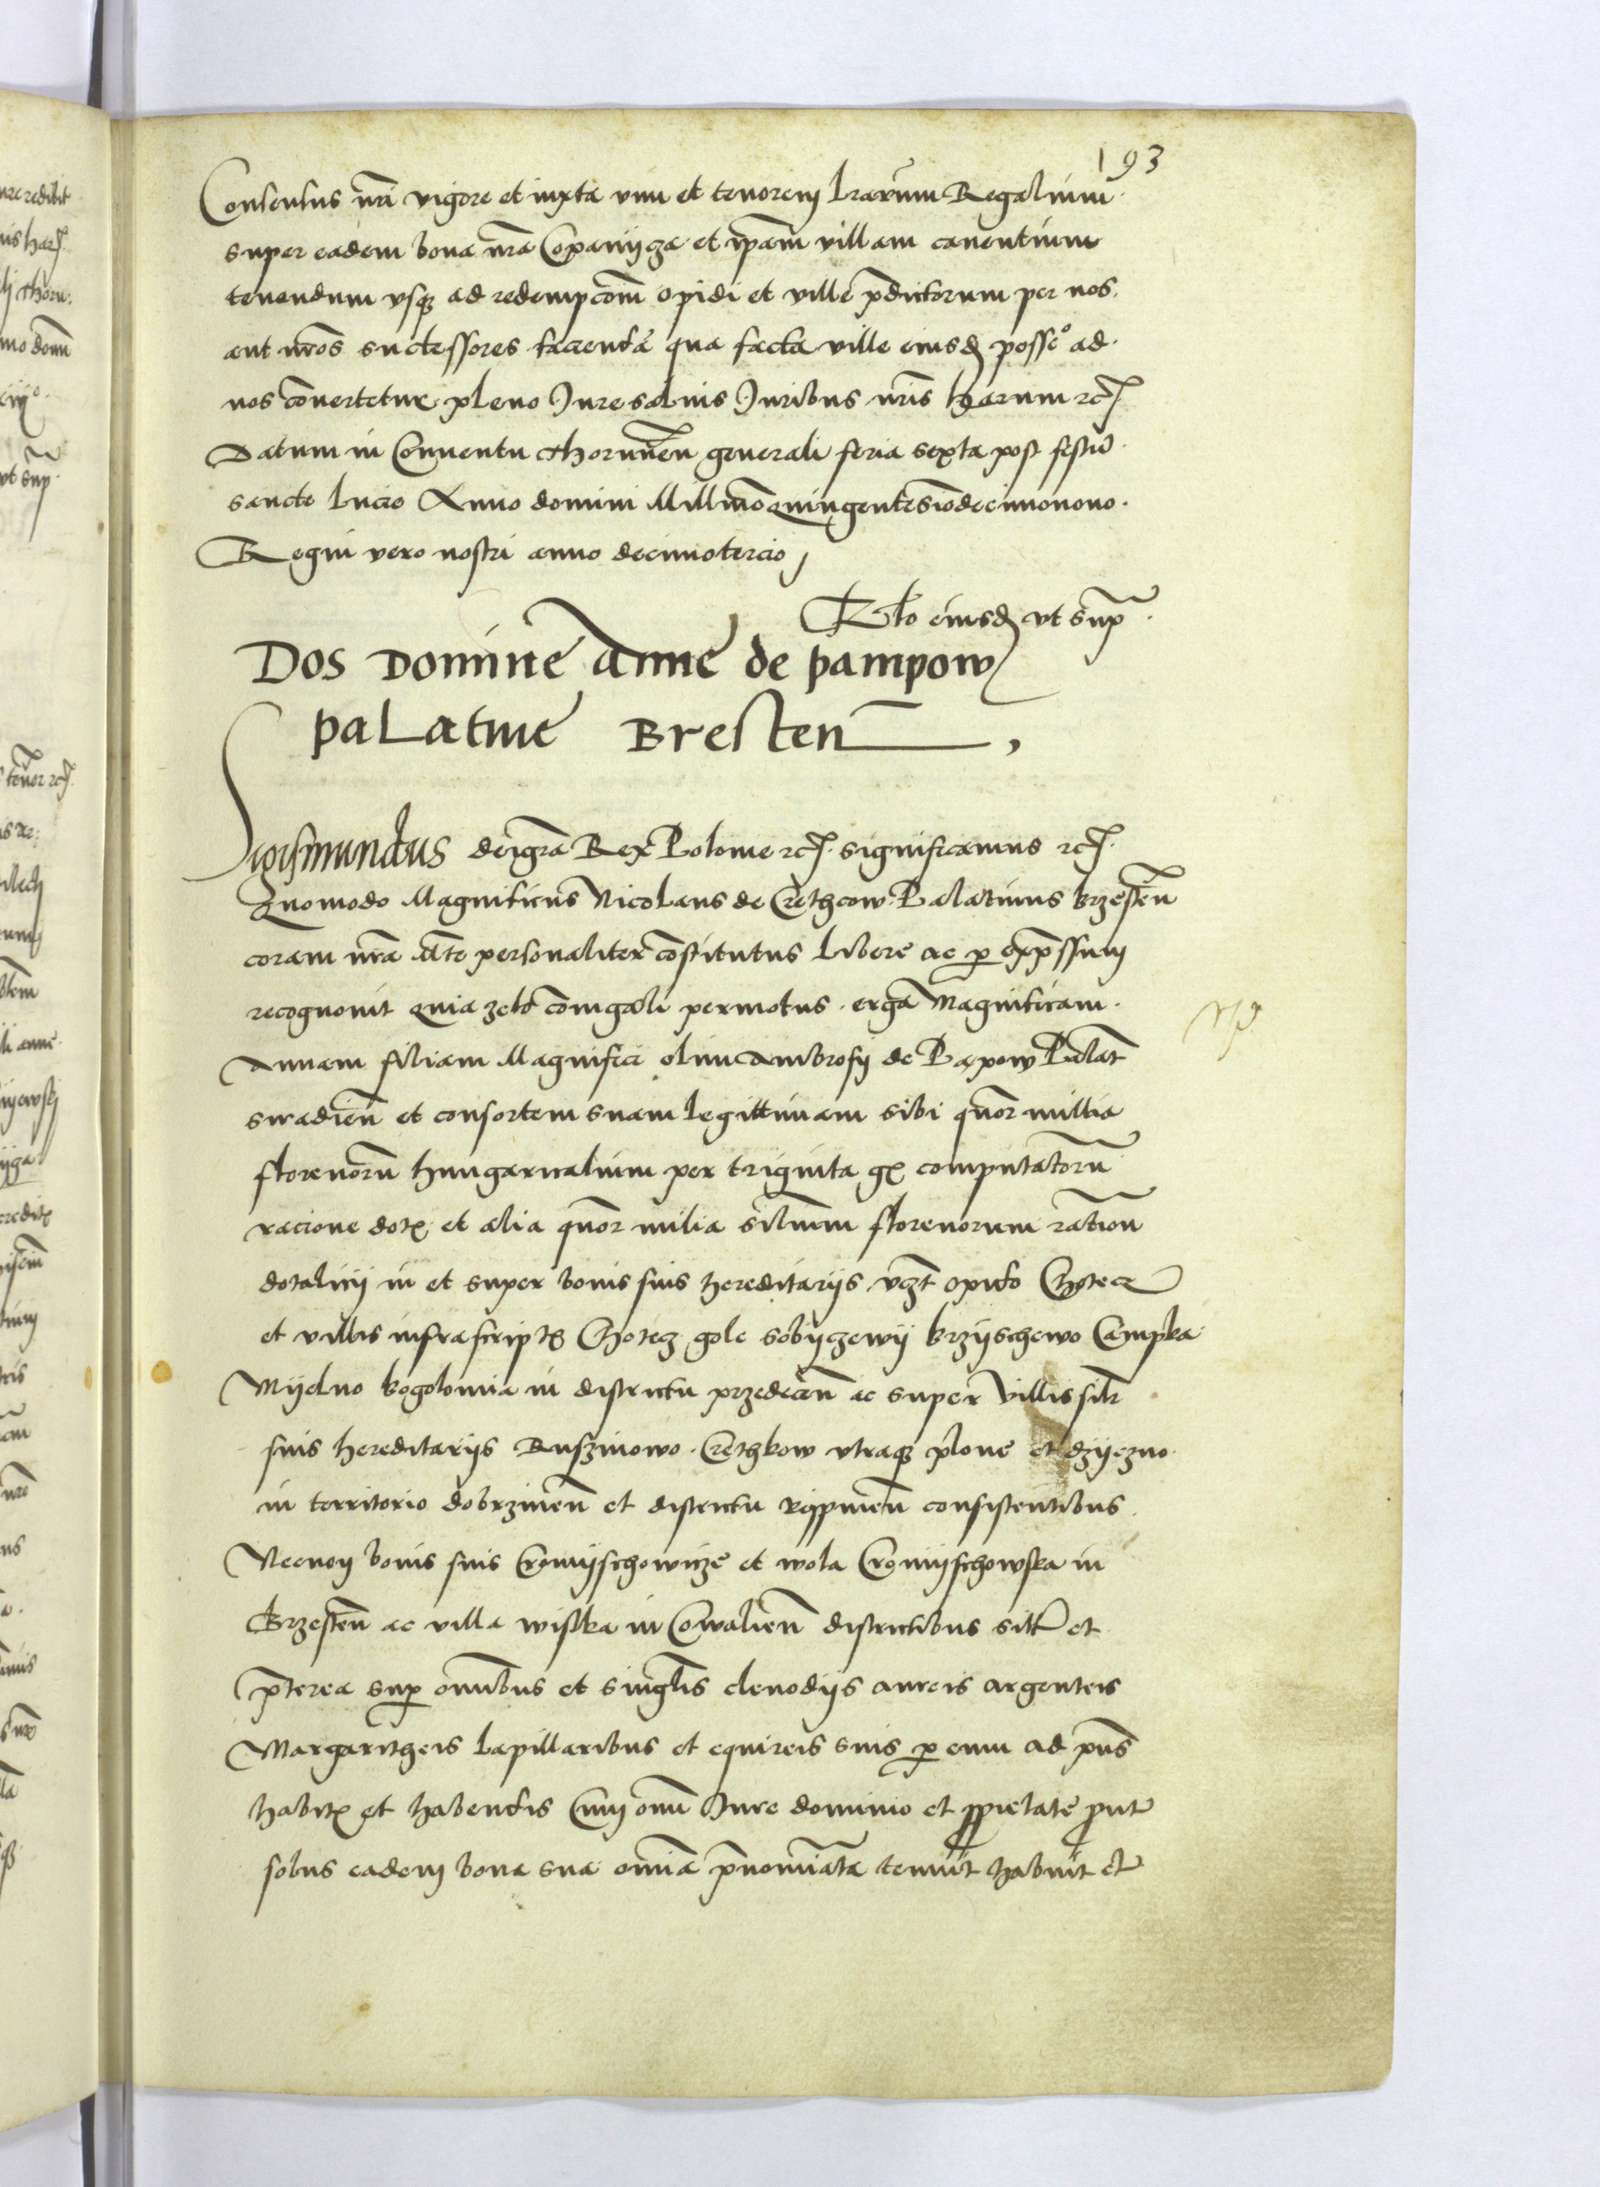 193
Consensus nri vigore et iuxta vim et tenorem lrarum Regalium
super eadem bona nra Copanijcza et ipam villam canentium
tenendum vsq ad redempcom opidi et ville pdictorum per nos
aut nros successores facienda qua facta ville eiusd posso ad
nos conuertetur pleno Jure saluis Juribus nris harum rc
Datum in Conuentu Thorunen generali feria sexta post festu
sancte lucie Anno domini Millmo Quingentesio decimonono
Regni vero nostri anno decimotercio
Rlo eiusd vt sup
Dos Domine Anne de pampow
palatine Bresten
Sigismundus dei gra Rex Polonie rc significamus rc
Quomodo Magnificus Nicolaus de Crethcow Palatinus brzesten
coram nra Mte personaliter constitutus libere ac p expssum
recognouit quia zelo coniugali permotus erga Magnificam
Annam filiam Magnifici olim Ambrosij de Papow Palat
siradien et consortem suam legittimam sibi quor millia
florenoru hungaricalium per triginta gs computatoru
racione dotis et alia quor milia silium florenorum ration
dotalicij in et super bonis suis hereditarijs vczt opido Chotecz
et villis infrascriptis Chotecz gole sobijczewij krzijschewo Campka
Mijelno kogolomia in districtu przedecen ac super villis silr
suis hereditarijs Ruszinowo Crethkow vtraq plone et dzijezno
in territorio dobrzinen et districtu Rijpinen consistentibus
Necnon bonis suis Cromijschowicze et wola Cromijschowska in
Brzesten ac villa wistka in Cowalien districtibus sitt et
pterea sup omibus et singlis clenodijs aureis argenteis
Margaritheis lapillaribus et equireis suis p eum ad pns
habitis et habendis Cum omi Jure dominio et pprietate prout
solus eadem bona sua omia pnomiata tenuit habuit et